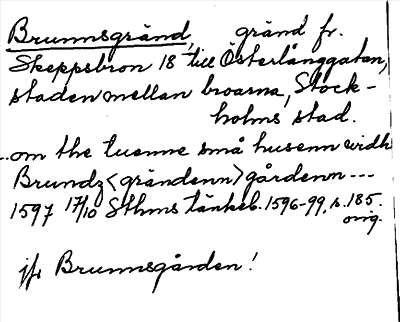 Brunnsgränd, gränd fr.
Skeppsbron 18 till Österlånggatan,
staden mellan broarna, Stock-
holms stad.
...om the tuenne små husenn widh
Brundz<grändenn>gårdenn---
1597 17/10 Sthms tänkeb. 1596-99, s. 185.
orig.
jfr Brunnsgården!